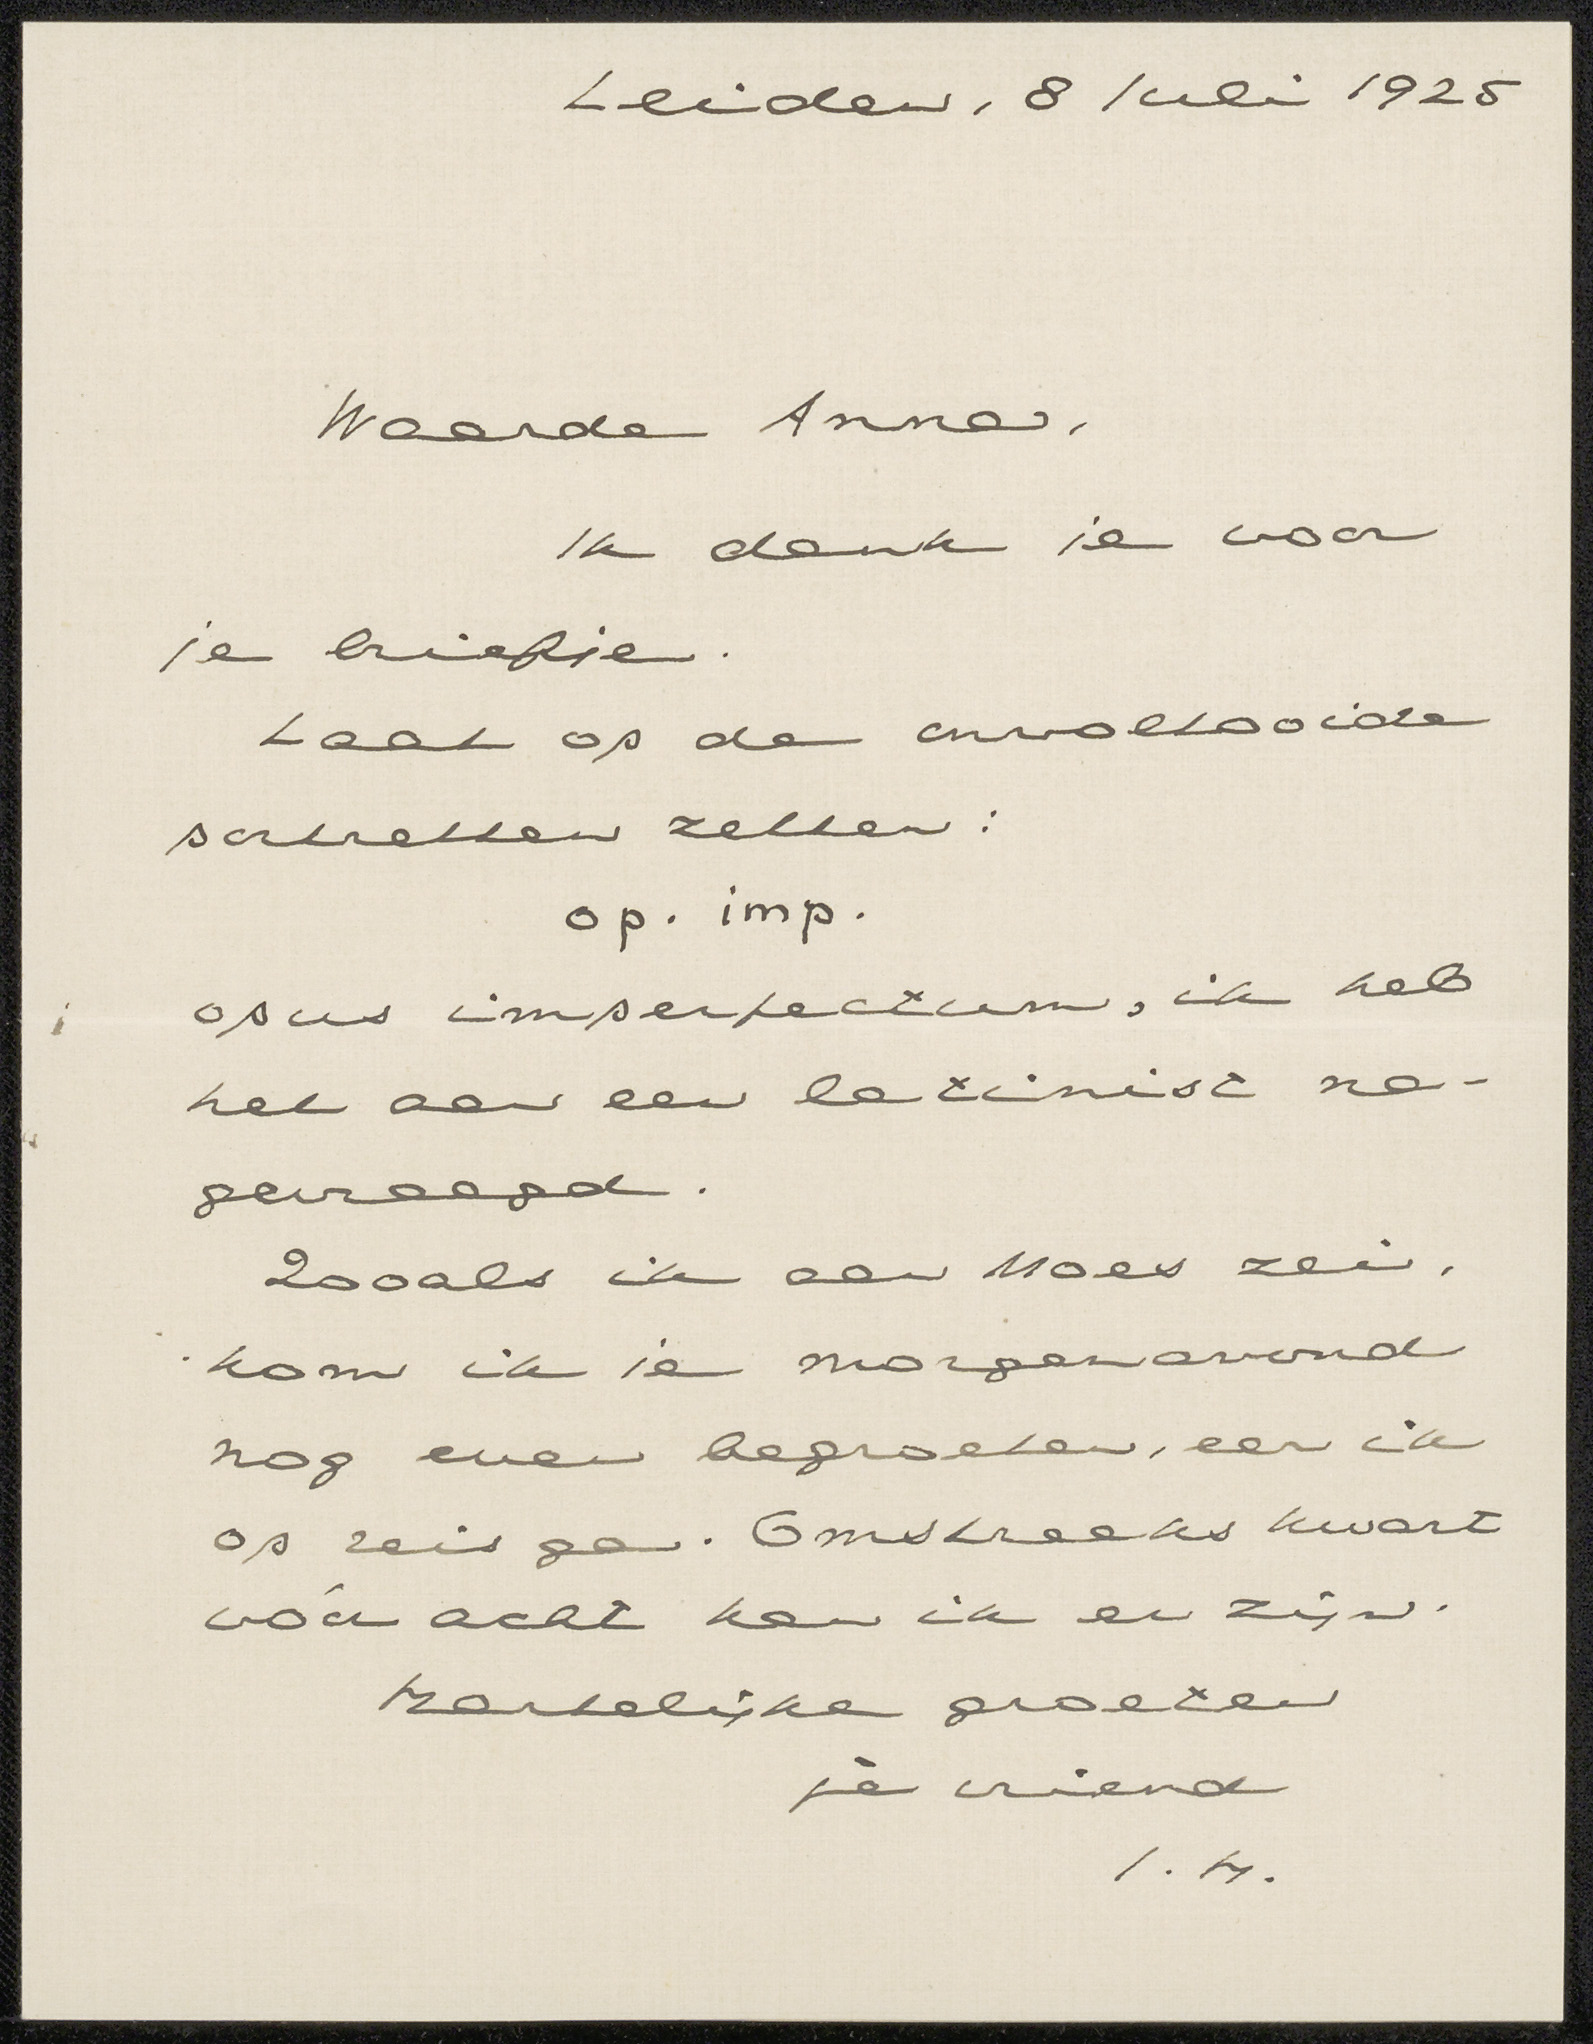 Leiden, 8 Juli 1925
Waarde Anna,
Ik dank je voor
je briefje.
Laat op de onvoltooide
portretten zetten:
op. imp.
opus imperfectum, ik heb
het aan een latinist na-
gevraagd.
Zooals ik aan Moes zei,
kom ik je morgenavond
nog even begroeten, eer ik
op reis ga. Omstreeks kwart
vóór acht kan ik er zijn.
Hartelijke groeten
je vriend
J. H.